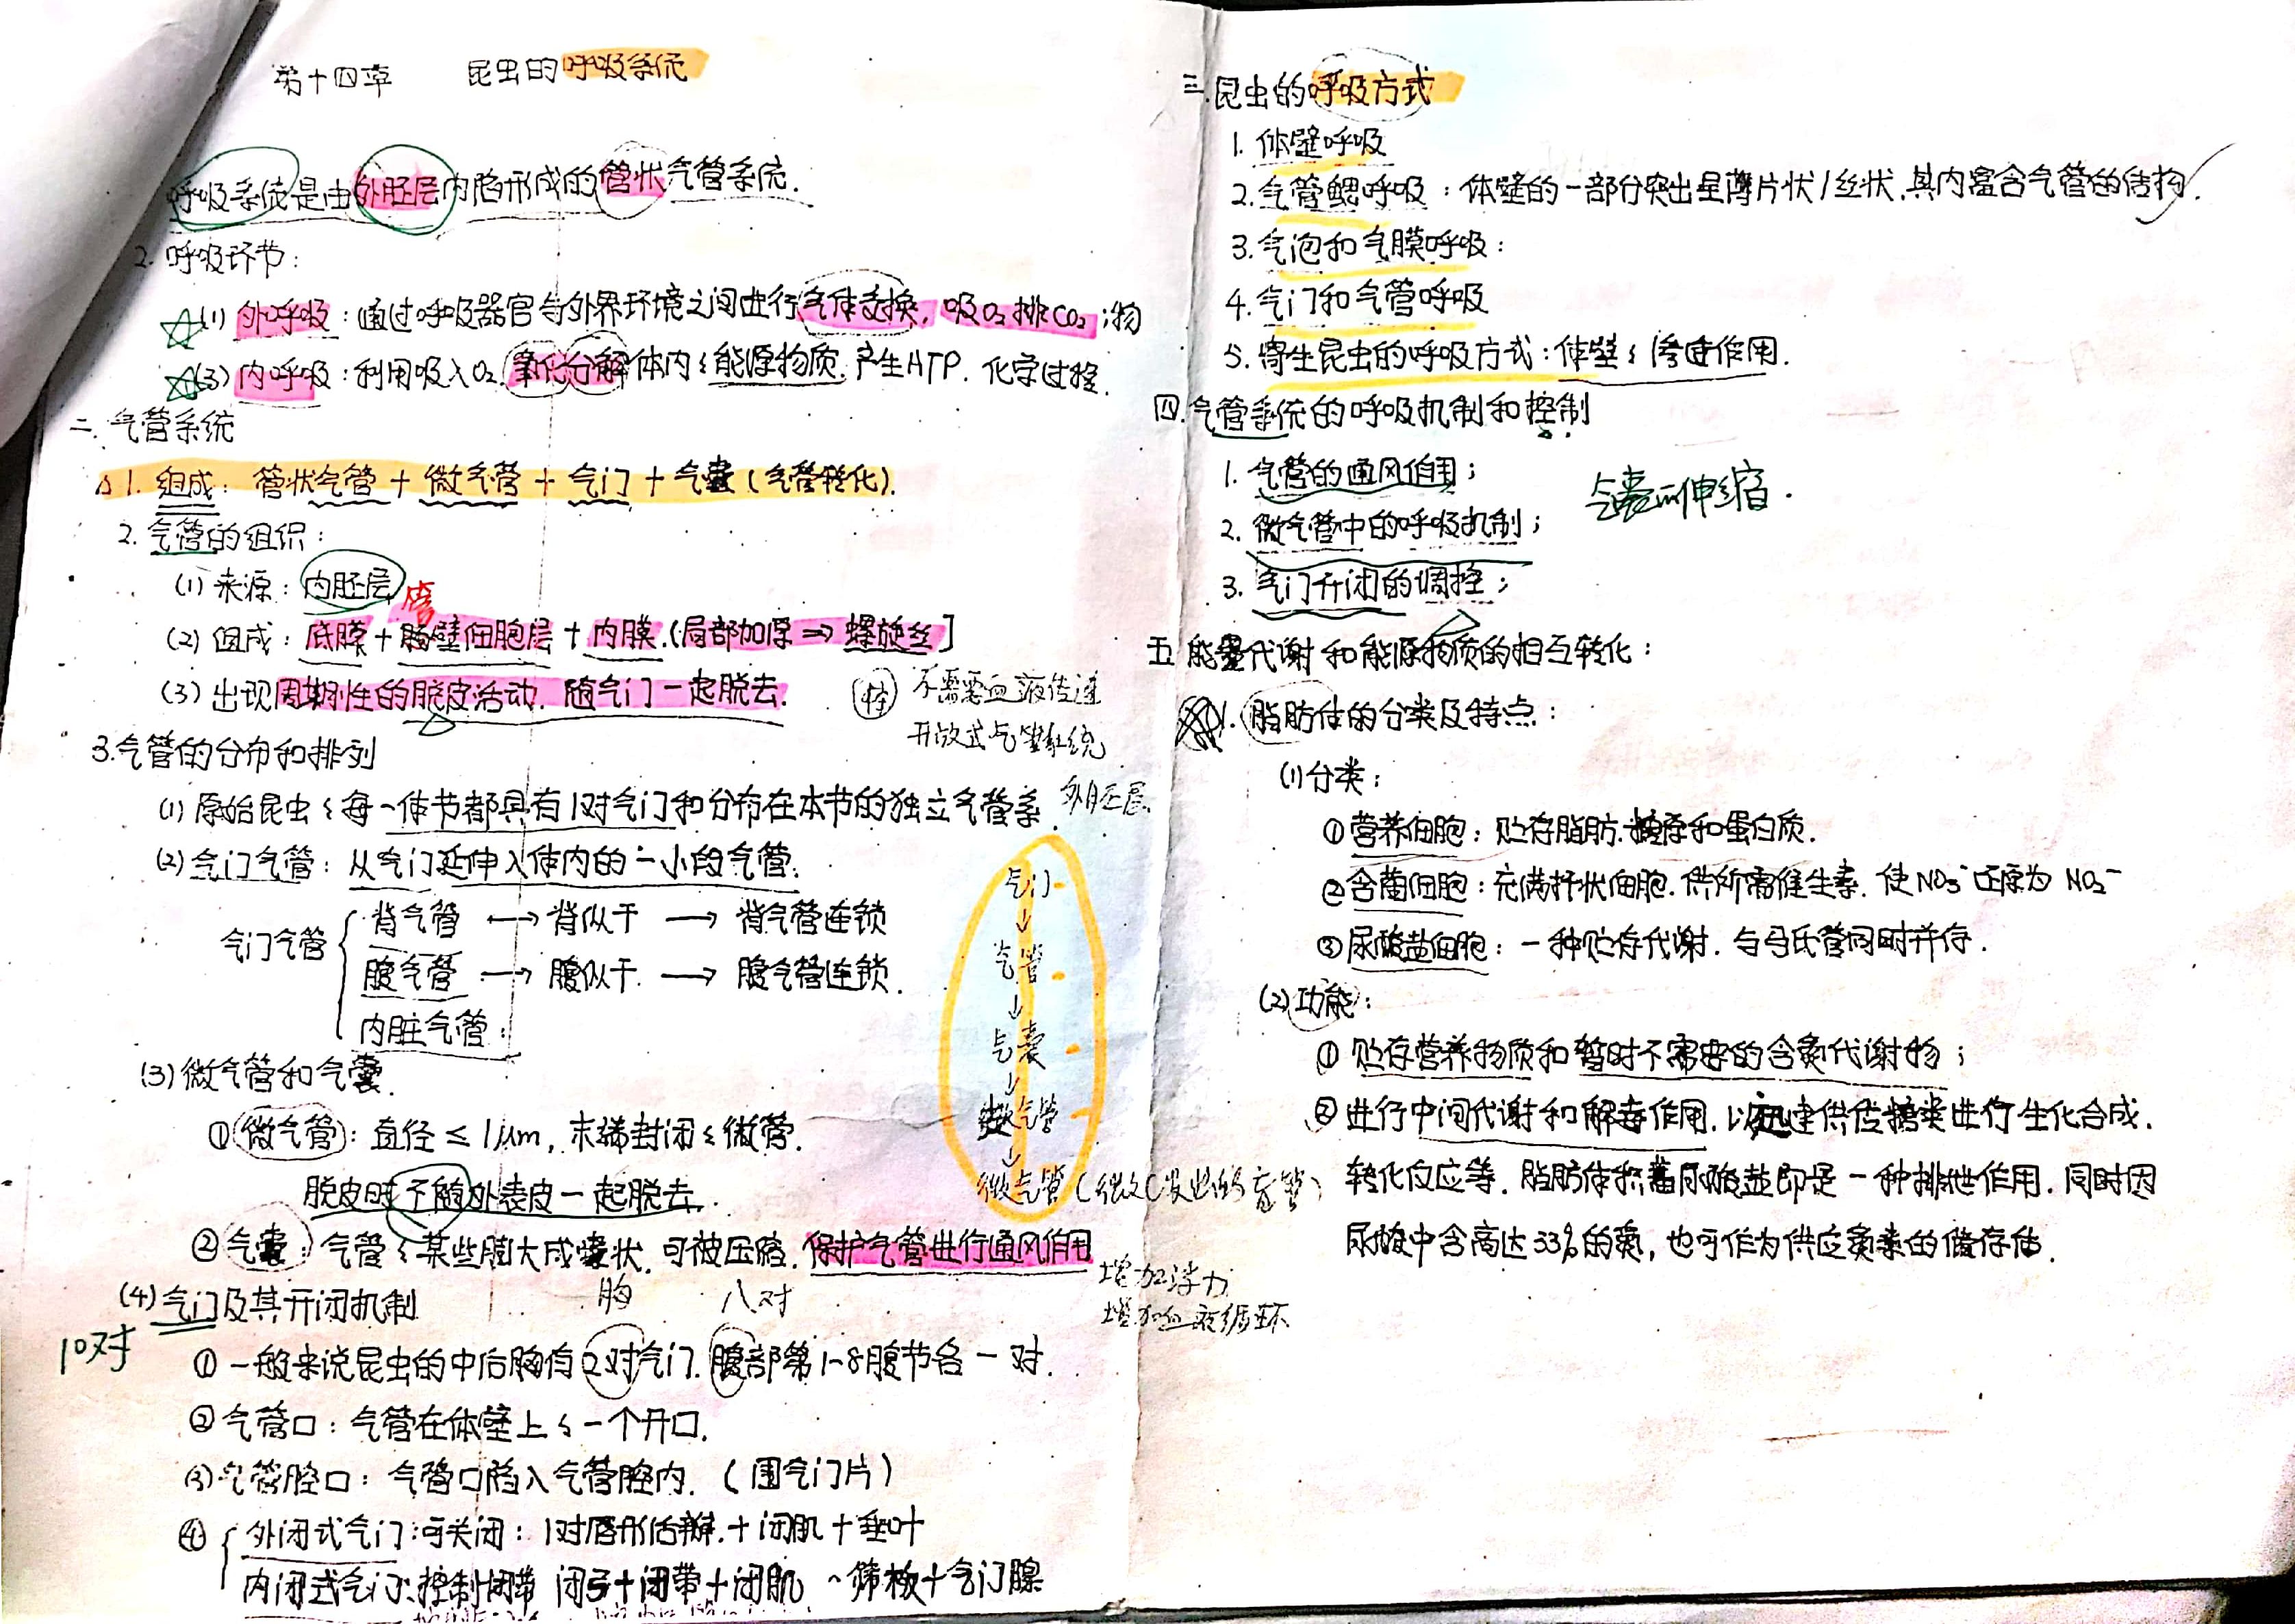 第十四章 昆虫的呼吸系统
呼吸系统是由外胚层内陷形成的管状气管系统.
2. 呼吸环节:
(1) 外呼吸: 通过呼吸器官与外界环境之间进行气体交换, 吸O₂排CO₂; 物
(3) 内呼吸: 利用吸入O₂, 氧化分解体内的能源物质, 产生ATP. 化学过程.
二. 气管系统
1. 组成: 管状气管 + 微气管 + 气门 + 气囊 (气管转化).
2. 气管的组织:
(1) 来源: 内胚层
(2) 组成: 底膜 + 管壁细胞层 + 内膜. (局部加厚 ⇒ 螺旋丝]
(3) 出现周期性的脱皮活动. 随气门一起脱去.
(特) 不需要血液传递
开放式气管系统
3. 气管的分布和排列
外胚层
(1) 原始昆虫的每一体节都具有1对气门和分布在本节的独立气管系.
(2) 气门气管: 从气门延伸入体内的一小段气管.
气门气管 { 背气管 → 背纵干 → 背气管连锁
腹气管 → 腹纵干 → 腹气管连锁.
内脏气管:
气门
↓
气管
↓
气囊
↓
支气管
↓
微气管
(3) 微气管和气囊.
① 微气管: 直径 ≤ 1μm, 末端封闭的微管.
脱皮时不随外表皮一起脱去.
② 气囊: 气管的某些膨大成囊状. 可被压缩. 保护气管进行通风作用
增加浮力
增加血液循环
(4) 气门及其开闭机制
胸 八对
10对
① 一般来说昆虫的中后胸有2对气门. 腹部第1-8腹节各一对.
② 气管口: 气管在体壁上的一个开口.
(3) 气管腔口: 气管口陷入气管腔内. (围气门片)
④ { 外闭式气门: 可关闭: 1对唇形活瓣. + 闭肌 + 垂叶
内闭式气门: 控制闭带 闭弓+闭带+闭肌 ~筛板+气门腺
三. 昆虫的呼吸方式
1. 体壁呼吸
2. 气管鳃呼吸: 体壁的一部分突出呈薄片状/丝状, 其内富含气管的结构.
3. 气泡和气膜呼吸:
4. 气门和气管呼吸
5. 寄生昆虫的呼吸方式: 体壁的渗透作用.
四. 气管系统的呼吸机制和控制
1. 气管的通风作用;
气囊的伸缩.
2. 微气管中的呼吸机制;
3. 气门开闭的调控;
五. 能量代谢和能源物质的相互转化:
1. 脂肪体的分类及特点:
(1) 分类:
① 营养细胞: 贮存脂肪. 糖原和蛋白质.
② 含菌细胞: 充满杆状细胞. 供所需维生素. 使NO₃⁻还原为 NO₂⁻
③ 尿酸盐细胞: 一种贮存代谢. 与马氏管同时并存.
(2) 功能:
① 贮存营养物质和暂时不需要的含氮代谢物;
② 进行中间代谢和解毒作用. 以迅速供使糖类进行生化合成.
转化反应等. 脂肪体积蓄尿酸盐即是一种排泄作用. 同时因
尿酸中含高达33%的氮, 也可作为供应氮素的储存体.